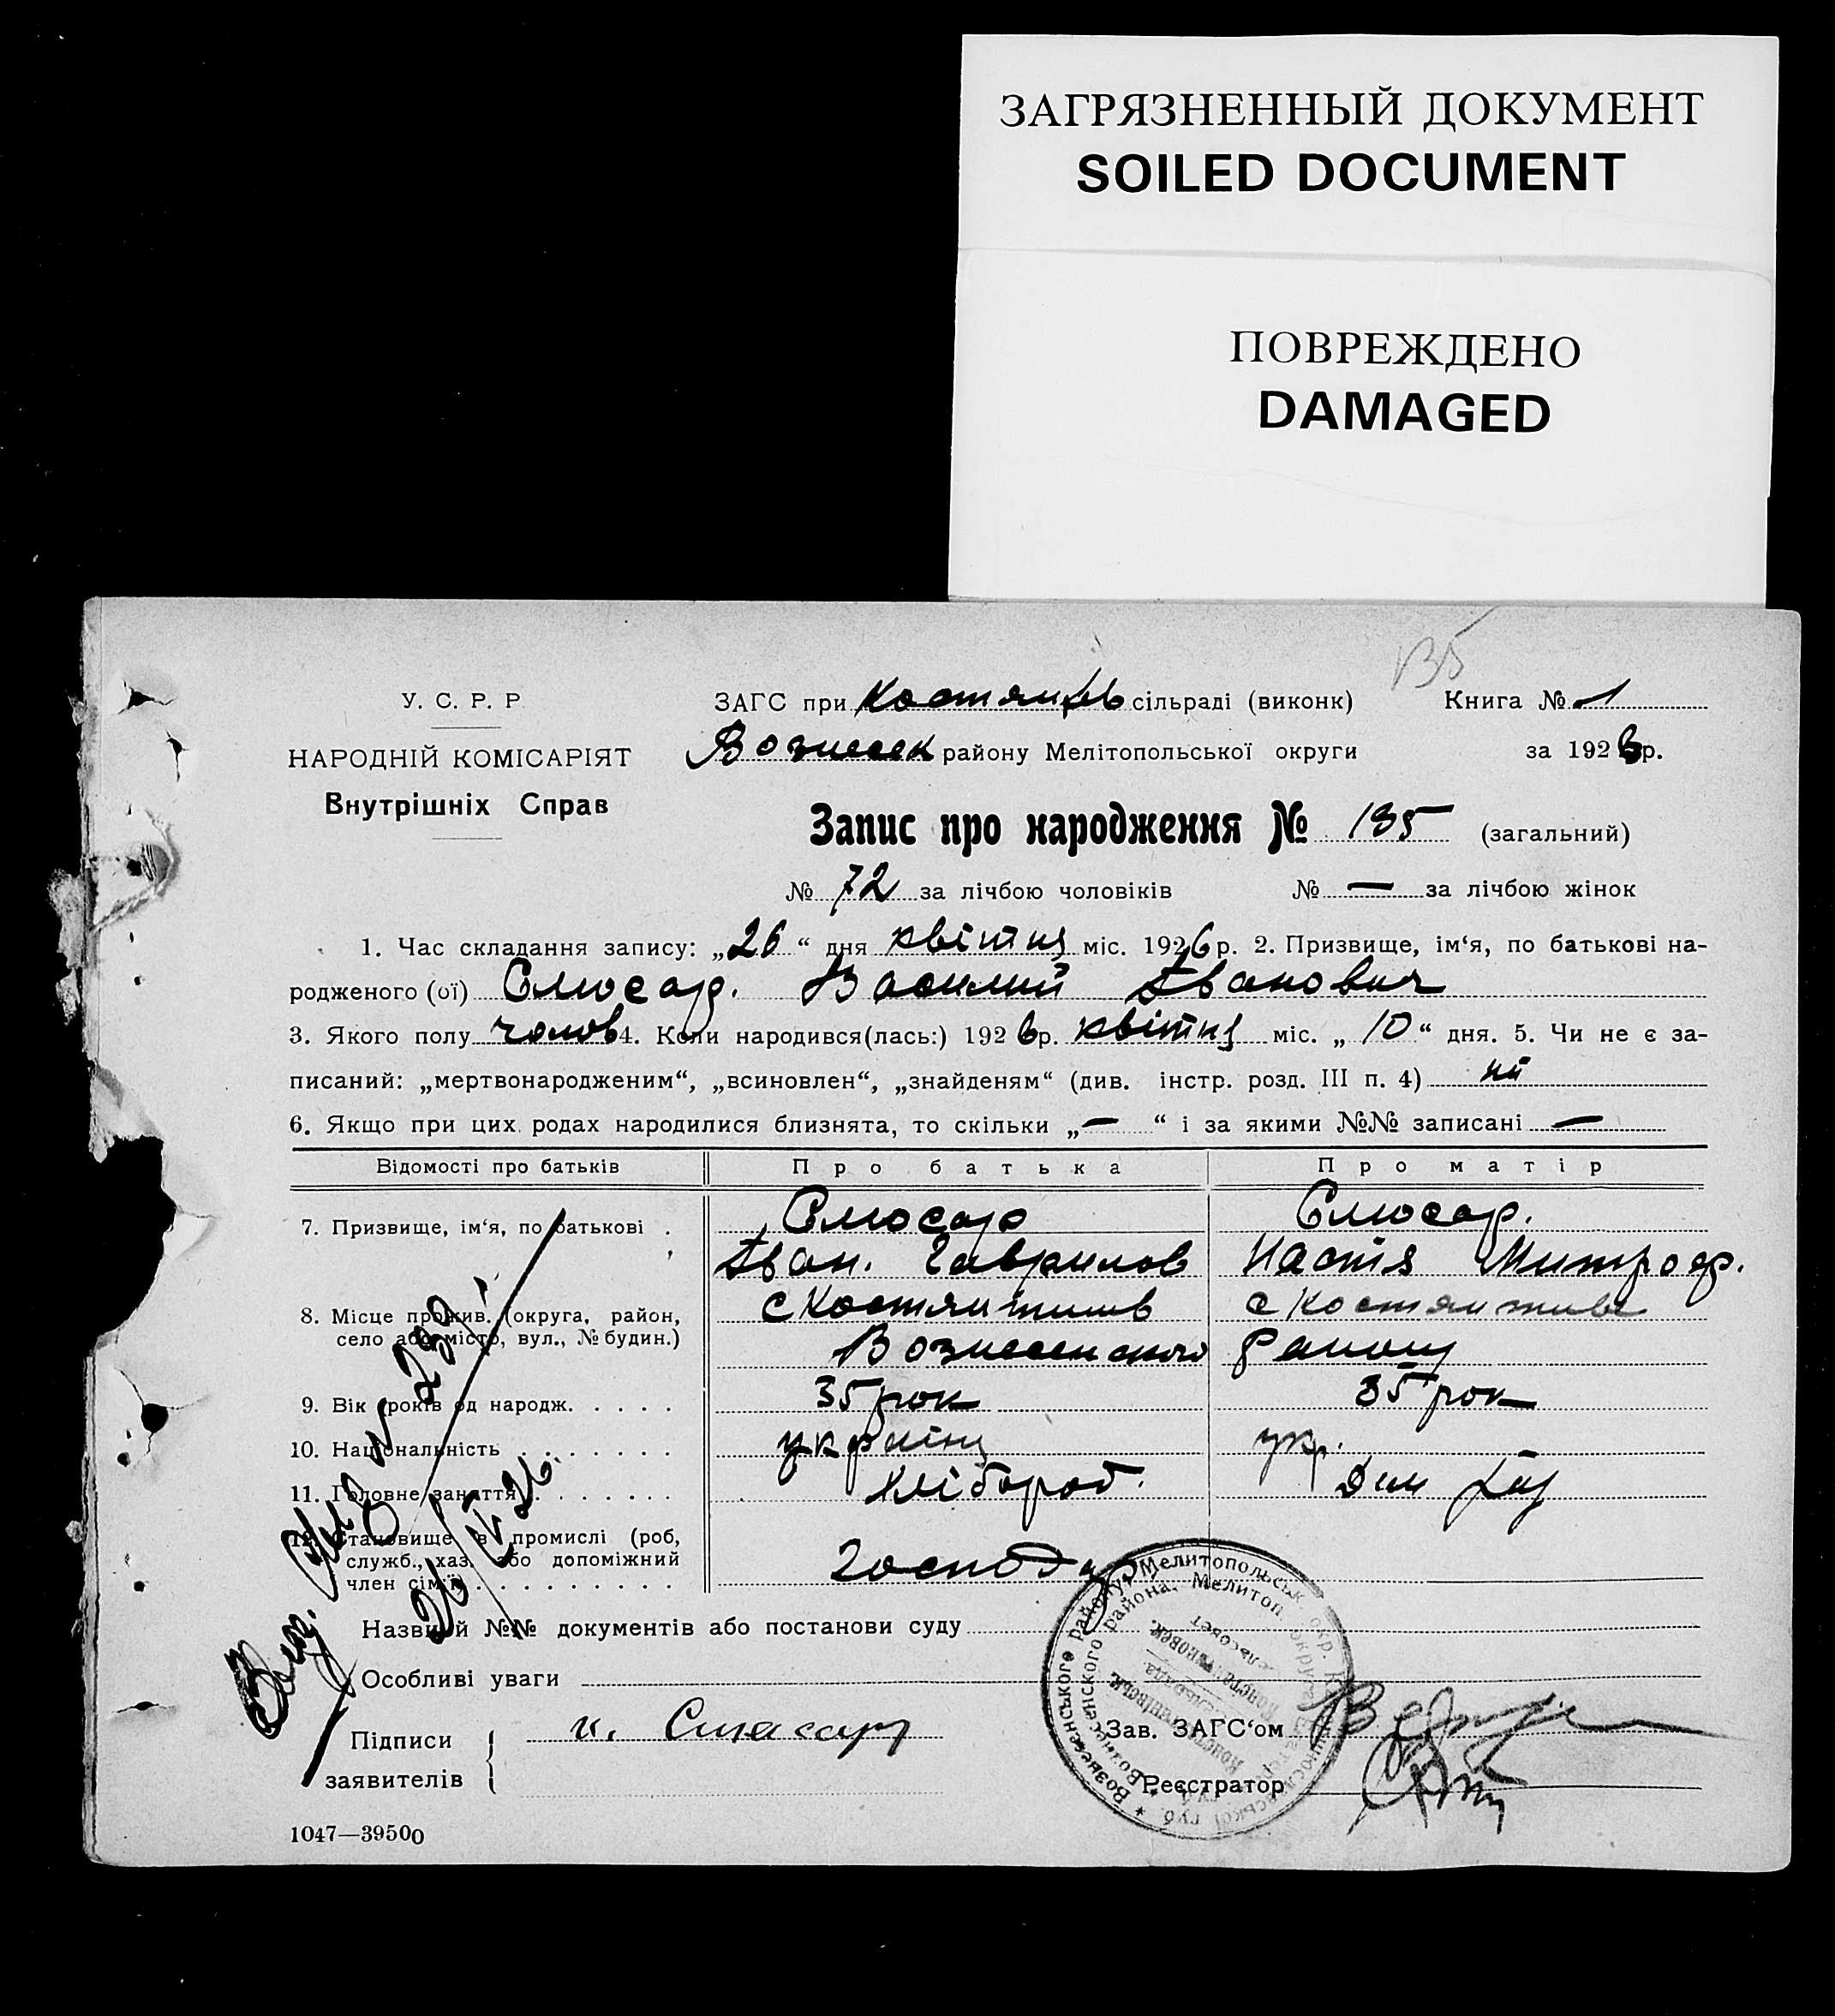 ЗАГРЯЗНЕННЫЙ ДОКУМЕНТ
SOILED DOCUMENT
ПОВРЕЖДЕНО
DAMAGED
135
У. С. Р. Р
НАРОДНІЙ КОМІСАРІЯТ
Внутрішніх Справ
ЗАГС при сільраді (виконк) Книга № 1
Вознесек району Мелітопольської округи за 1926 р.
Запис про народження № 135 (загальний)
№ 72 за лічбою чоловіків № — за лічбою жінок
1. Час складання запису: „26“ дня квітня міс. 1926 р. 2. Призвище, ім‘я, по батькові на-
родженого (ої) Слюсар. Василий Іванович
3. Якого полу чолов 4. Коли народився(лась:) 1926 р. квітня міс. „10“ дня. 5. Чи не є за-
писаний: „мертвонародженим“, „всиновлен“, „знайденям“ (див. інстр. розд. III п. 4) ні
6. Якщо при цих родах народилися близнята, то скільки „—“ і за якими №№ записані —
Відомості про батьків Про батька Про матір
7. Призвище, ім‘я, по батькові . Слюсар Слюсар.
Іван. Гаврилов Настя Митроф.
8. Місце прожив. (округа, район,
село або місто, вул., № будин.)
Вознесенского району
9. Вік (років од народж. . . . . 35 рок 35 рок
10. Національність . . . . . . . україн укр.
11. Головне заняття . . . . . . . хлібороб.
12. Становище в промислі (роб,
служб., хаз. або допоміжний
член сім‘ї) . . . . . . . . . . Господар
Назва й №№ документів або постанови суду
Особливі уваги
Підписи
заявителів
и. Слюсар
Зав. ЗАГС‘ом
Реєстратор
1047—39500